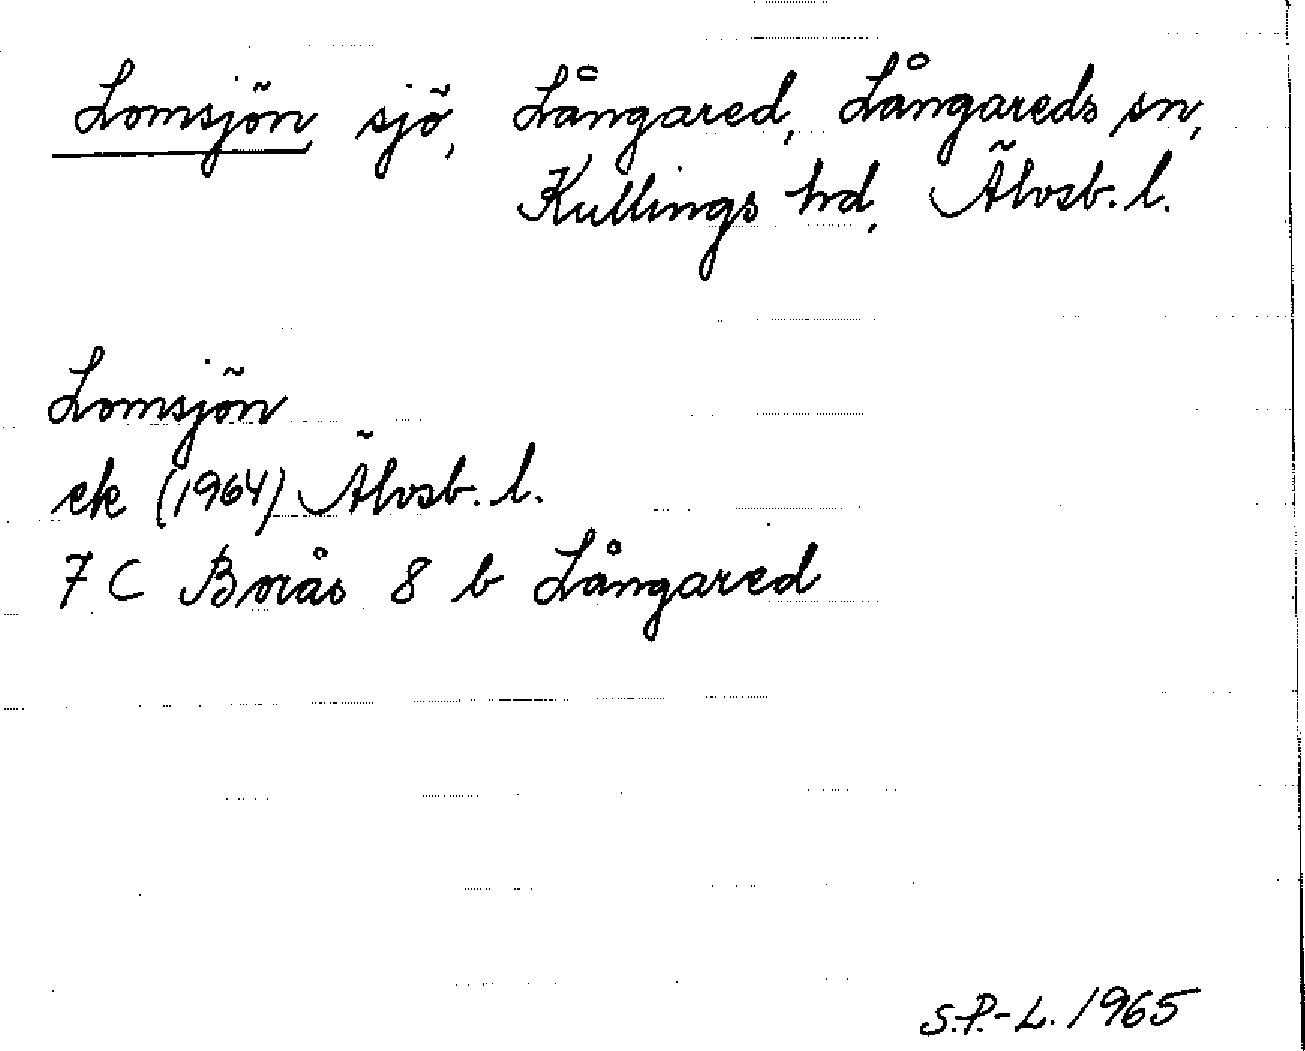 Lomsjön sjö, Långared, Långareds sn,
Kullings hd, Älvsb. l.
Lomsjön
ek (1964) Älvsb. l.
7 C Borås 8 b Långared
S.P.-L. 1965